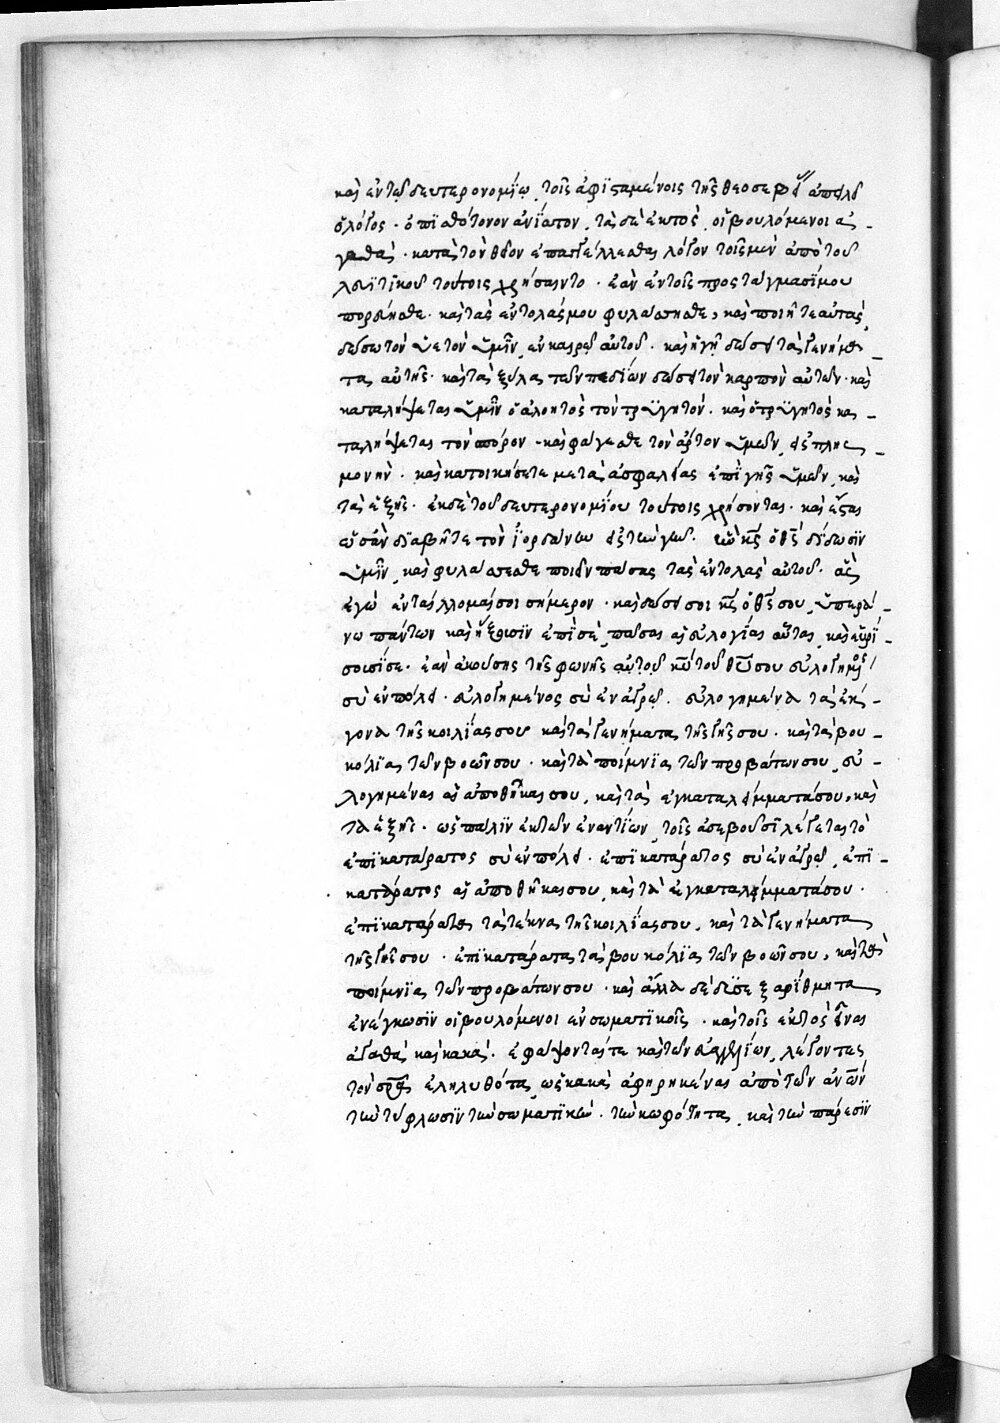 καὶ ἐν τῷ δευτερονομίῳ τοῖς ἀφϊσταμένοις τῆς θεοσεβεί ἀπειλεῖ
ὁ λόγος · ὀπϊσθότονον ἀνίατον τὰ δὲ ἐκτὸς οἱ βουλόμενοι ἀ-
γαθὰ · κατὰ τὸν θεὸν ἐπαγγέλλεσθαι λόγον τοῖς μὲν ἀπὸ τοῦ
λευϊτϊκοῦ τούτοις χρήσαιντο · ἐὰν ἐν τοῖς προστάγμασί μου
πορεύησθε · καὶ τὰς ἐντολάς μου φυλάσησθε, καὶ ποιῆτε αὐτάς
δώσω τὸν ὑετὸν ὑμῖν ἐν καιρῷ αὐτοῦ · καὶ ἡ γῆ δώσει τὰ γενήμα-
τα αὐτῆς · καὶ τὰ ξύλα τῶν πεδίων δώσει τὸν καρπὸν αὐτῶν · καὶ
καταλήψεται ὑμῖν ὁ ἀλοητὸς τὸν τρϋγητόν · καὶ ὁ τρϋγητὸς κα-
ταλήψεται τὸν σπόρον · καὶ φάγεσθε τὸν ἄρτον ὑμῶν εἰς πλησ-
μονήν · καὶ κατοικήσετε μετὰ ἀσφαλείας ἐπὶ γῆς ὑμῶν καὶ
τὰ ἑξῆς · ἐκ δὲ τοῦ δευτερονομίου τούτοις χρήσονται · καὶ ἔσται
ὡς ἂν διαβῆτε τὸν ἰορδάνην εἰς τὴν γῆν ἣν κς ὁ θς δίδωσϊν
ὑμῖν καὶ φυλάσεσθε ποιεῖν πάσας τὰς ἐντολὰς αὐτοῦ · ἃς
ἐγὼ ἐντέλλομαί σοι σήμερον · καὶ δώσει σοι κς ὁ θς σου ὑπερά-
νω πάντων καὶ ἥξουσϊν ἐπὶ σὲ πᾶσαι αἱ εὐλογίαι αὗται καὶ εὑρή-
σουσί σε · ἐὰν ἀκούσῃς τῆς φωνῆς αὐτοῦ κυ τοῦ θυ σου εὐλογημένος
σὺ ἐν πόλει · εὐλογημένος σὺ ἐν ἀγρῷ · εὐλογημένα τὰ ἔκ-
γονα τῆς κοιλίας σου καὶ τὰ γενήματα τῆς γῆς σου · καὶ τὰ βου-
κόλϊα τῶν βοῶν σου · καὶ τὰ ποίμνϊα τῶν προβάτων σου εὐ-
λογημέναι αἱ ἀποθῆκαι σου καὶ τὰ ἐγκαταλείμματά σου · καὶ
τὰ ἑξῆς · ὡς πάλϊν ἐκ τῶν ἐναντίων τοῖς ἀσεβοῦσι λέγεται τὸ
ἐπϊκατάρατος σὺ ἐν πόλει · ἐπϊκατάρατος σὺ ἐν ἀγρῷ ἐπϊ-
κατάρατος αἱ ἀποθῆκαι σου καὶ τὰ ἐγκαταλείμματά σου ·
ἐπϊκατάρατα τὰ τέκνα τῆς κοιλίας σου καὶ τὰ γενήματα
τῆς γῆς σου · ἐπϊκατάρατα τὰ βουκόλϊα τῶν βοῶν σου, καὶ τὰ
ποίμνϊα τῶν προβάτων σου · καὶ ἄλλα δὲ δϊσεξαρίθμητα
ἐνέγκωσϊν οἱ βουλόμενοι ἐν σωματϊκοῖς · καὶ τοῖς ἐκτὸς εἶναι
ἀγαθὰ καὶ κακά · ἐφάψονται τε καὶ τῶν εὐαγγελίων λέγοντες
τὸν σρα ἐληλυθότα ὡς κακὰ ἀφῃρηκέναι ἀπὸ τῶν ἀνων
τὴν τύφλωσϊν τὴν σωματϊκήν · τὴν κωφότητα καὶ τὴν πάρεσϊν